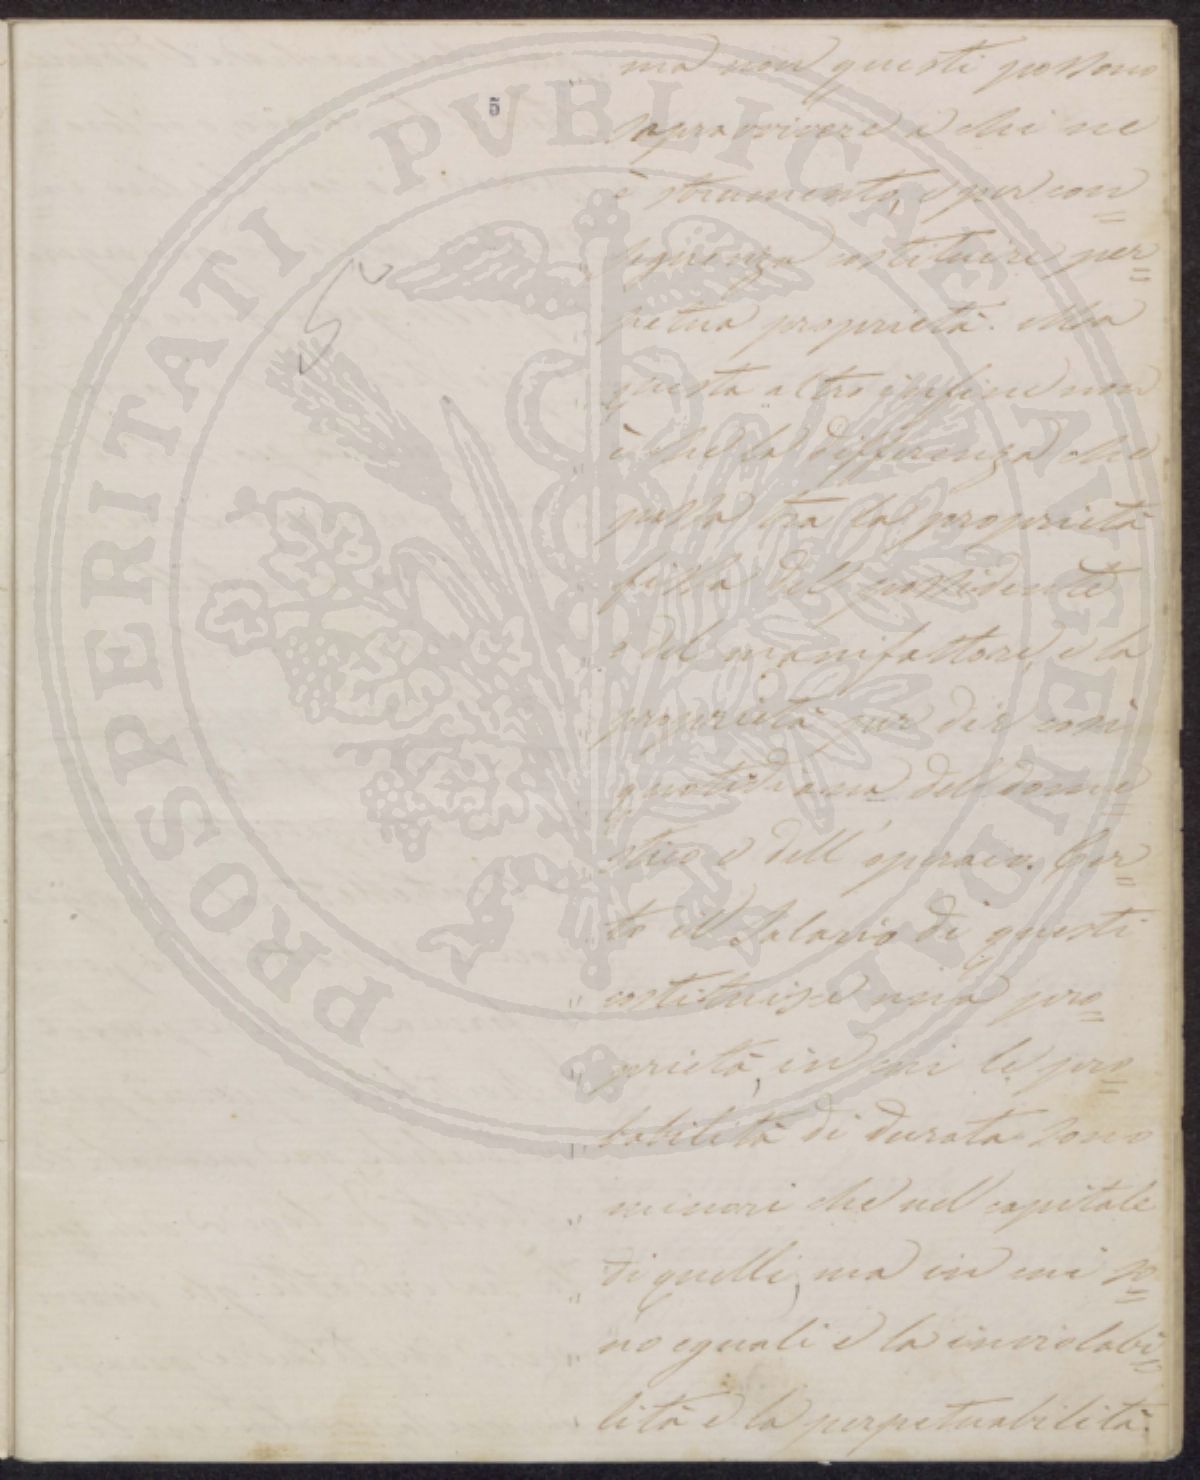 5
ma non questi possono
sopravvivere a chi ne
è strumento, e per con=
seguenza costituire per=
petua proprietà. Ma
questa altro infine non
è che la differenza che
passa tra la proprietà
fissa del possidente
o del manifattore, e la
proprietà per dir così
quotidiana del dome=
stico e dell'operaio. Cer=
to il salario di questi
costituisce una pro=
prietà, in cui le pro=
babilità di durata sono
minori che nel capitale
di quelli, ma in cui so=
no eguali e la inviolabi=
lità e la perpetuabilità.
PROSPERITATI PVBLICAE AVGENDAE